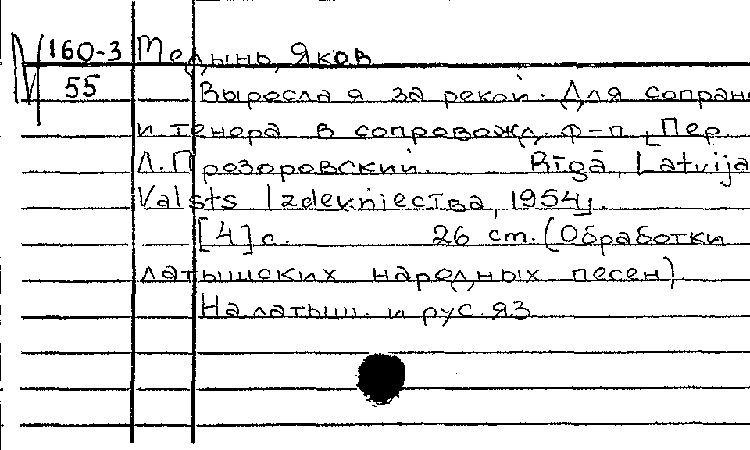 160-3 Медынь, Яков
55 Выросла я за рекой. Для сопрано
и тенора в сопровожд. ф-п. [Пер.
Л. Прозоровский. Rīgā, Latvijas
Valsts Izdevniecība, 1954].
[4] с. 26 cm. (Обработки
латышских народных песен)
На латыш. и рус. яз.